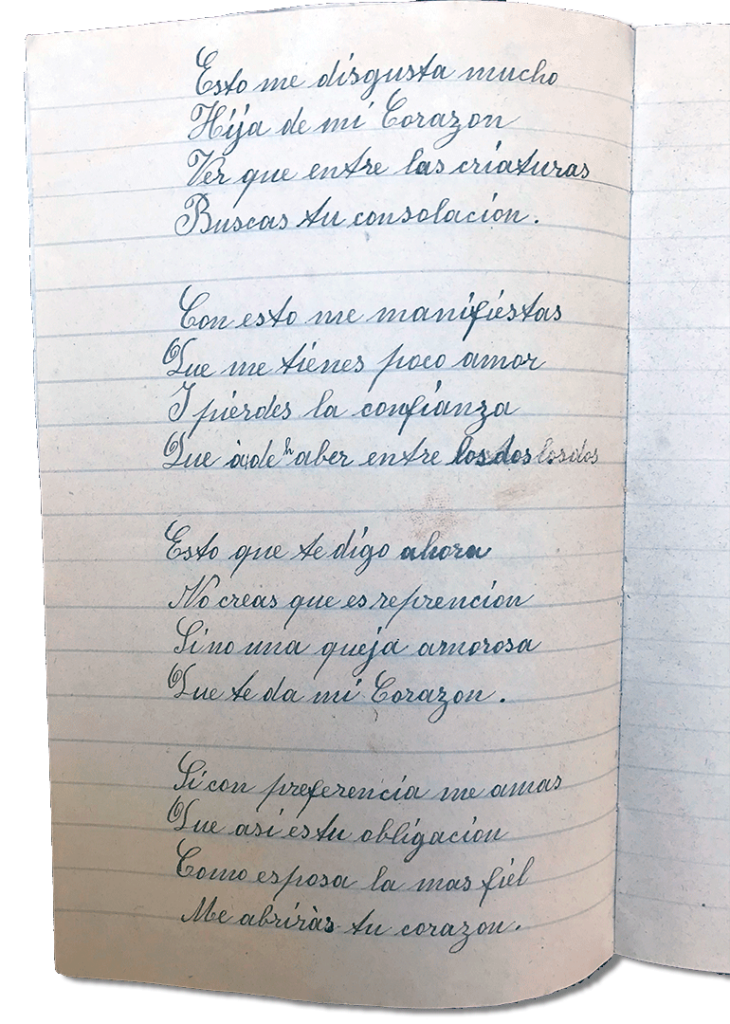 Esto me disgusta mucho
Hija de mi Corazon
Ver que entre las criaturas
Buscas tu consolacion.
Con esto me manifiestas
Que me tienes poco amor
I pierdes la confianza
Que à de haber entre los dos los dos
Esto que te digo ahora
No creas que es reprencion
Sino una queja amorosa
Que te da mi Corazon.
Si con preferencia me amas
Que asi es tu obligacion
Como esposa la mas fiel
Me abriràs tu corazon.